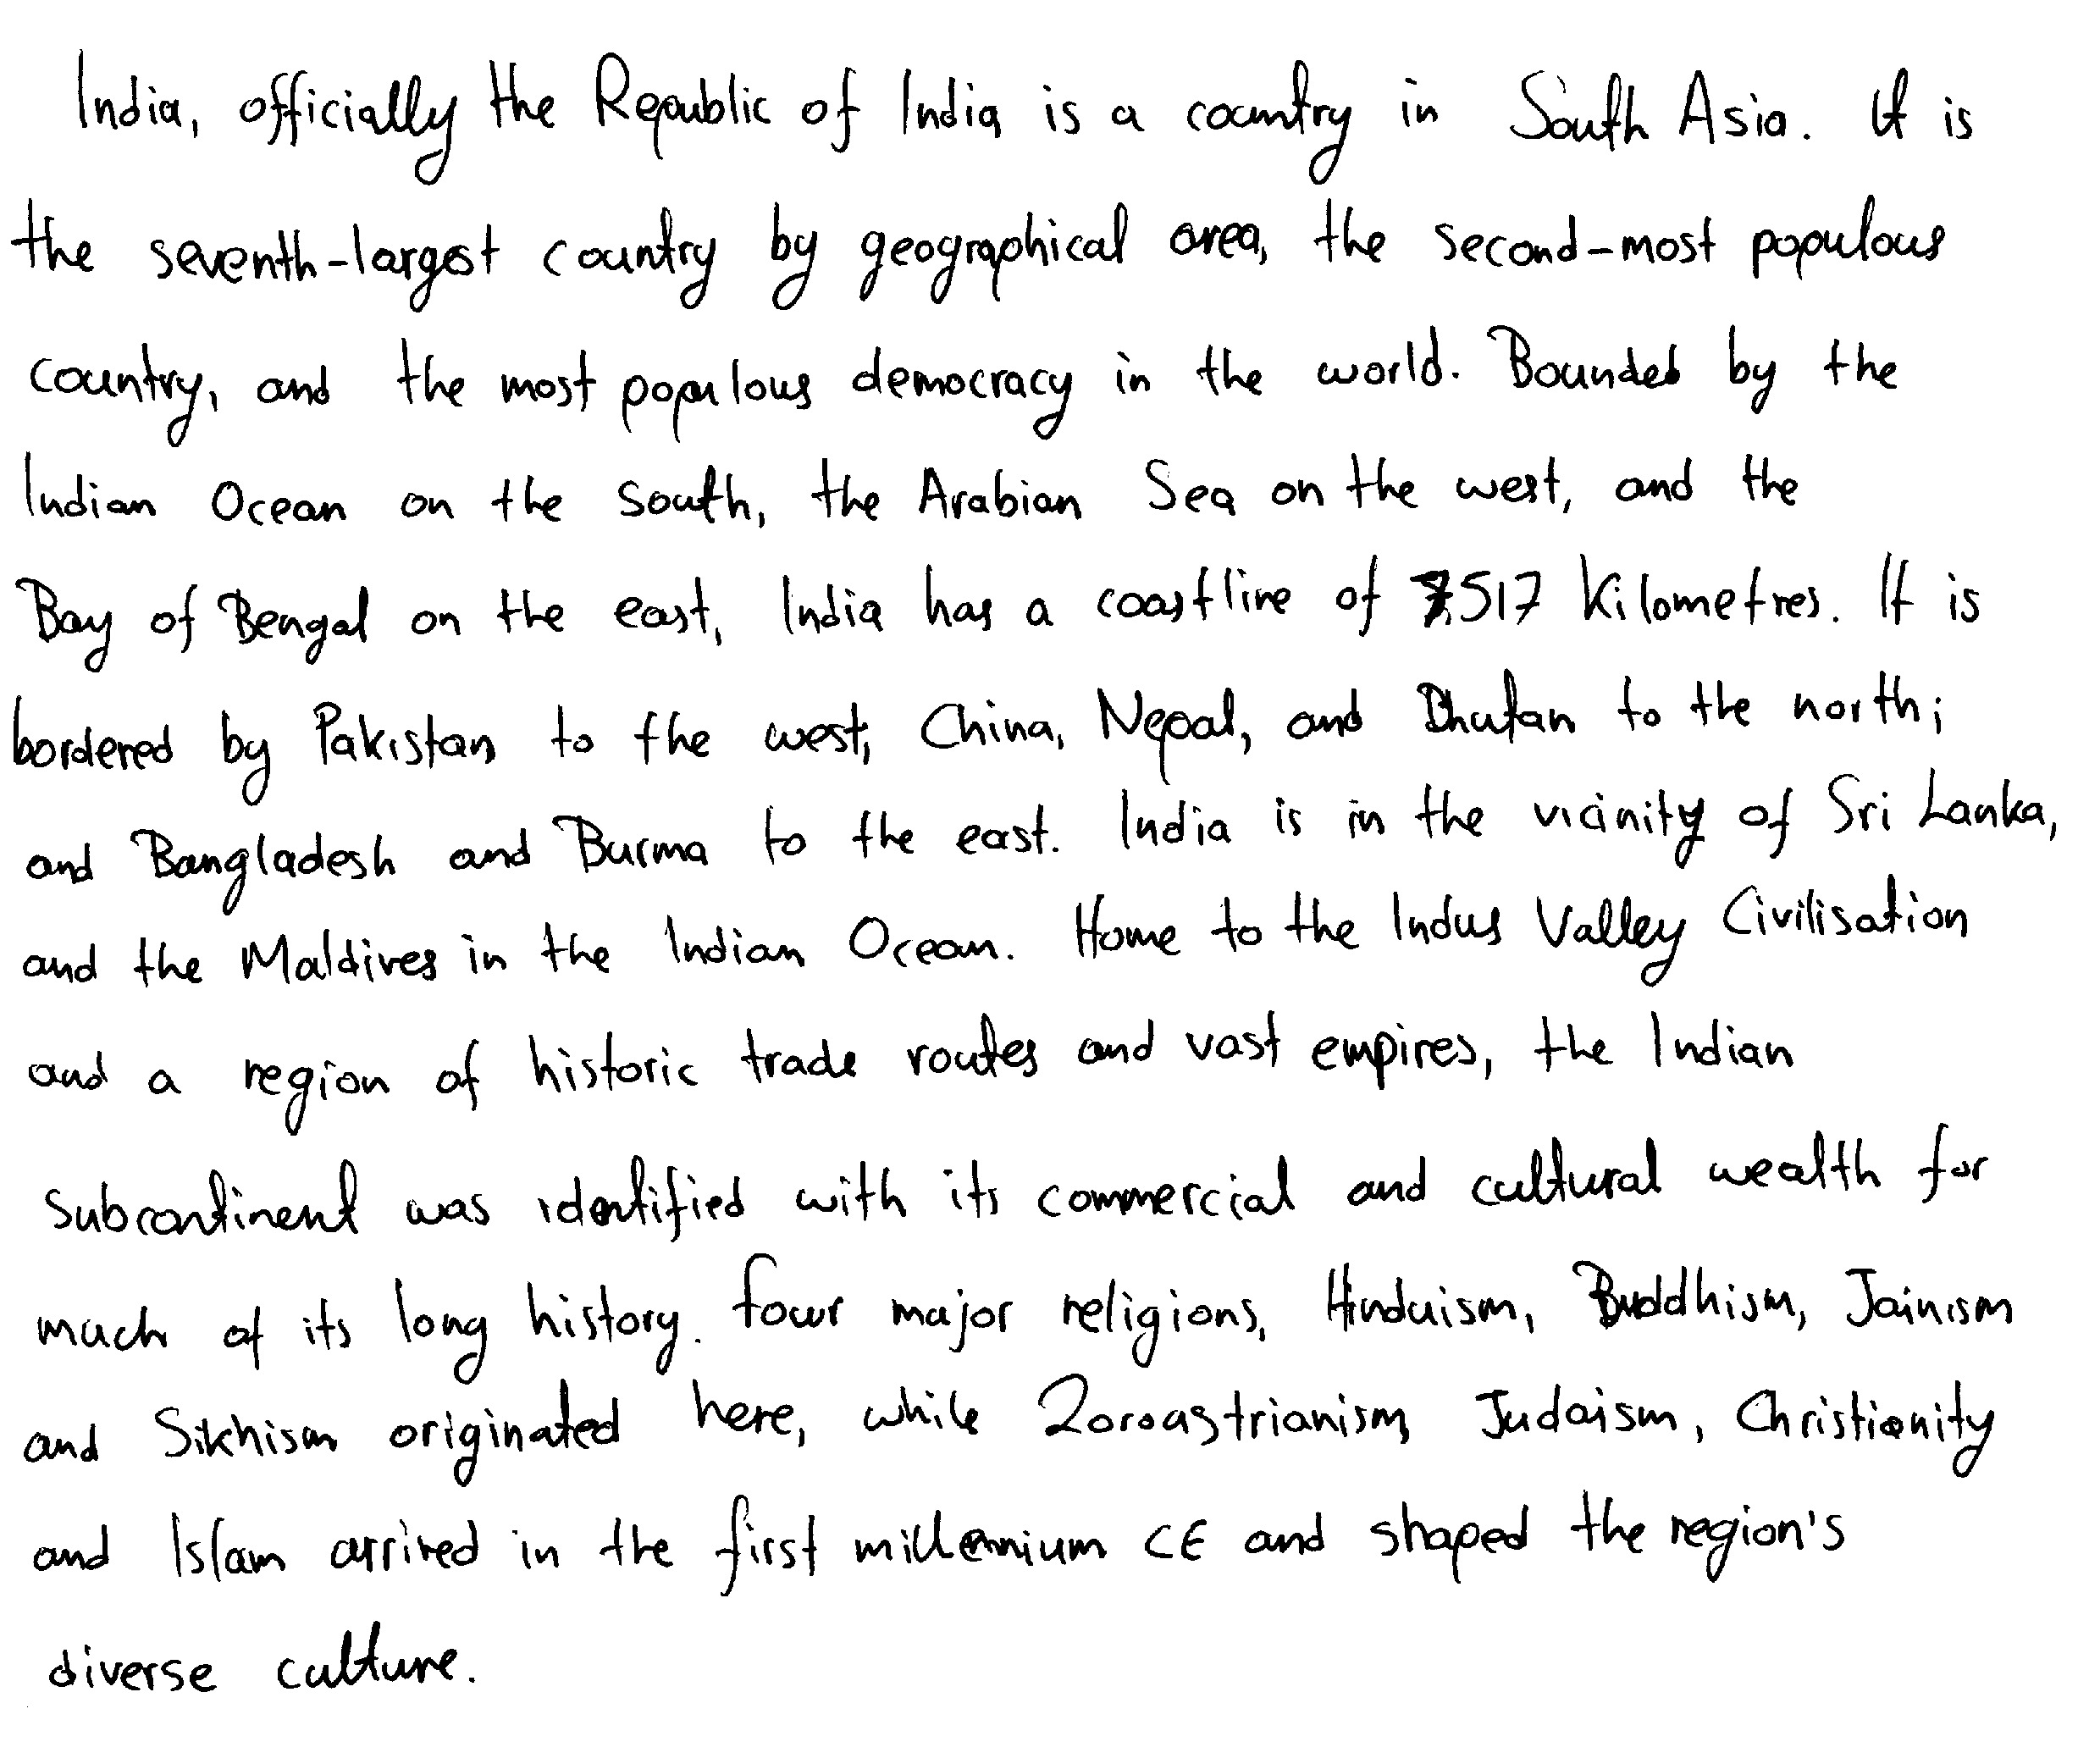 India, officially the Republic of India is a country in South Asia. It is
the seventh-largest country by geographical area, the second-most populous
country, and the most populous democracy in the world. Bounded by the
Indian Ocean on the south, the Arabian Sea on the west, and the
Bay of Bengal on the east, India has a coastline of 7,517 Kilometres. It is
bordered by Pakistan to the west; China, Nepal, and Bhutan to the north;
and Bangladesh and Burma to the east. India is in the vicinity of Sri Lanka,
and the Maldives in the Indian Ocean. Home to the Indus Valley Civilisation
and a region of historic trade routes and vast empires, the Indian
subcontinent was identified with its commercial and cultural wealth for
much of its long history. Four major religions, Hinduism, Buddhism, Jainism
and Sikhism originated here, while Zoroastrianism, Judaism, Christianity
and Islam arrived in the first millennium CE and shaped the region's
diverse culture.